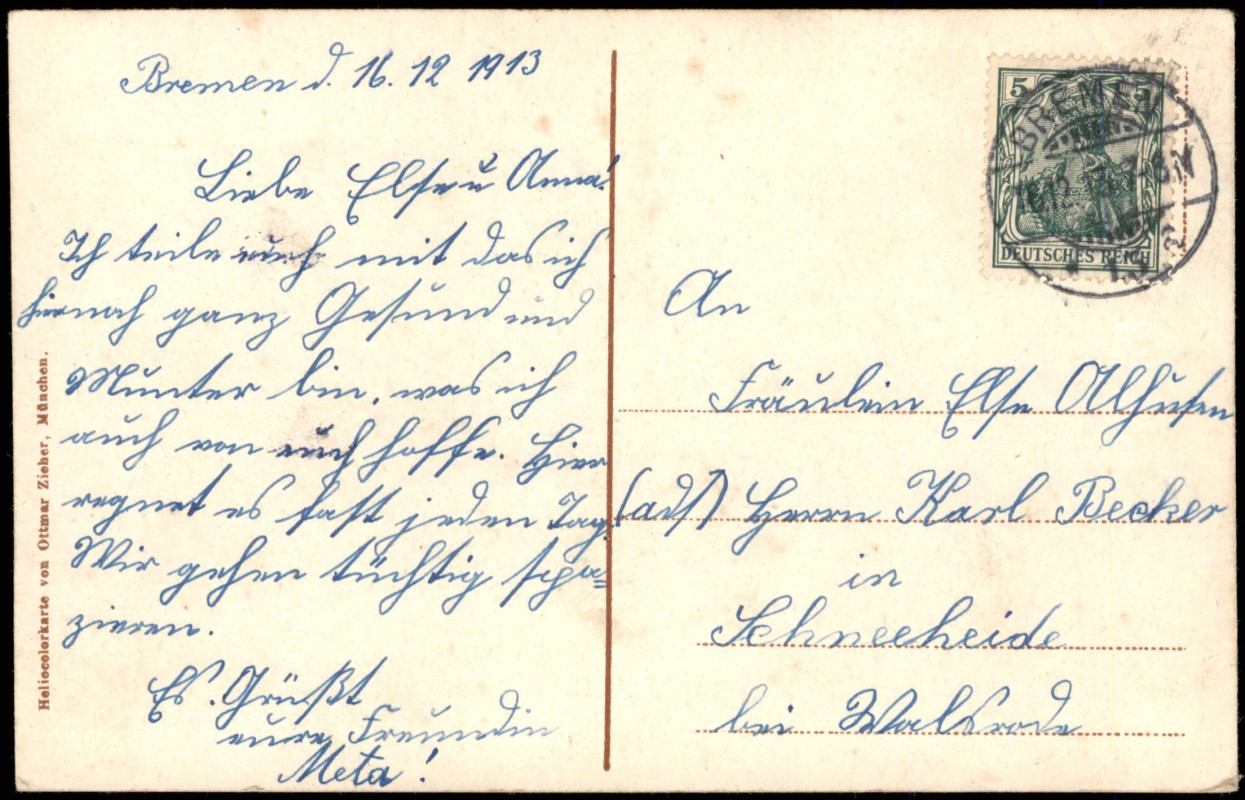 Bremen d. 16. 12 1913
Liebe Else u Anna!
Ich teile euch mit das ich
hier noch ganz Gesund und
Munter bin, was ich
auch von euch hoffe. Hier
regnet es fast jeden Tag.
Wir gehen tüchtig spa=
zieren.
Es. Grüßt
eure Freundin
Meta!
Heliocolorkarte von Ottmar Zieher, München.
5 5
DEUTSCHES REICH
BREMEN
An
Fräulein Else Alhusen
(ads) Herrn Karl Becker
in
Schneeheide
bei Walsrode